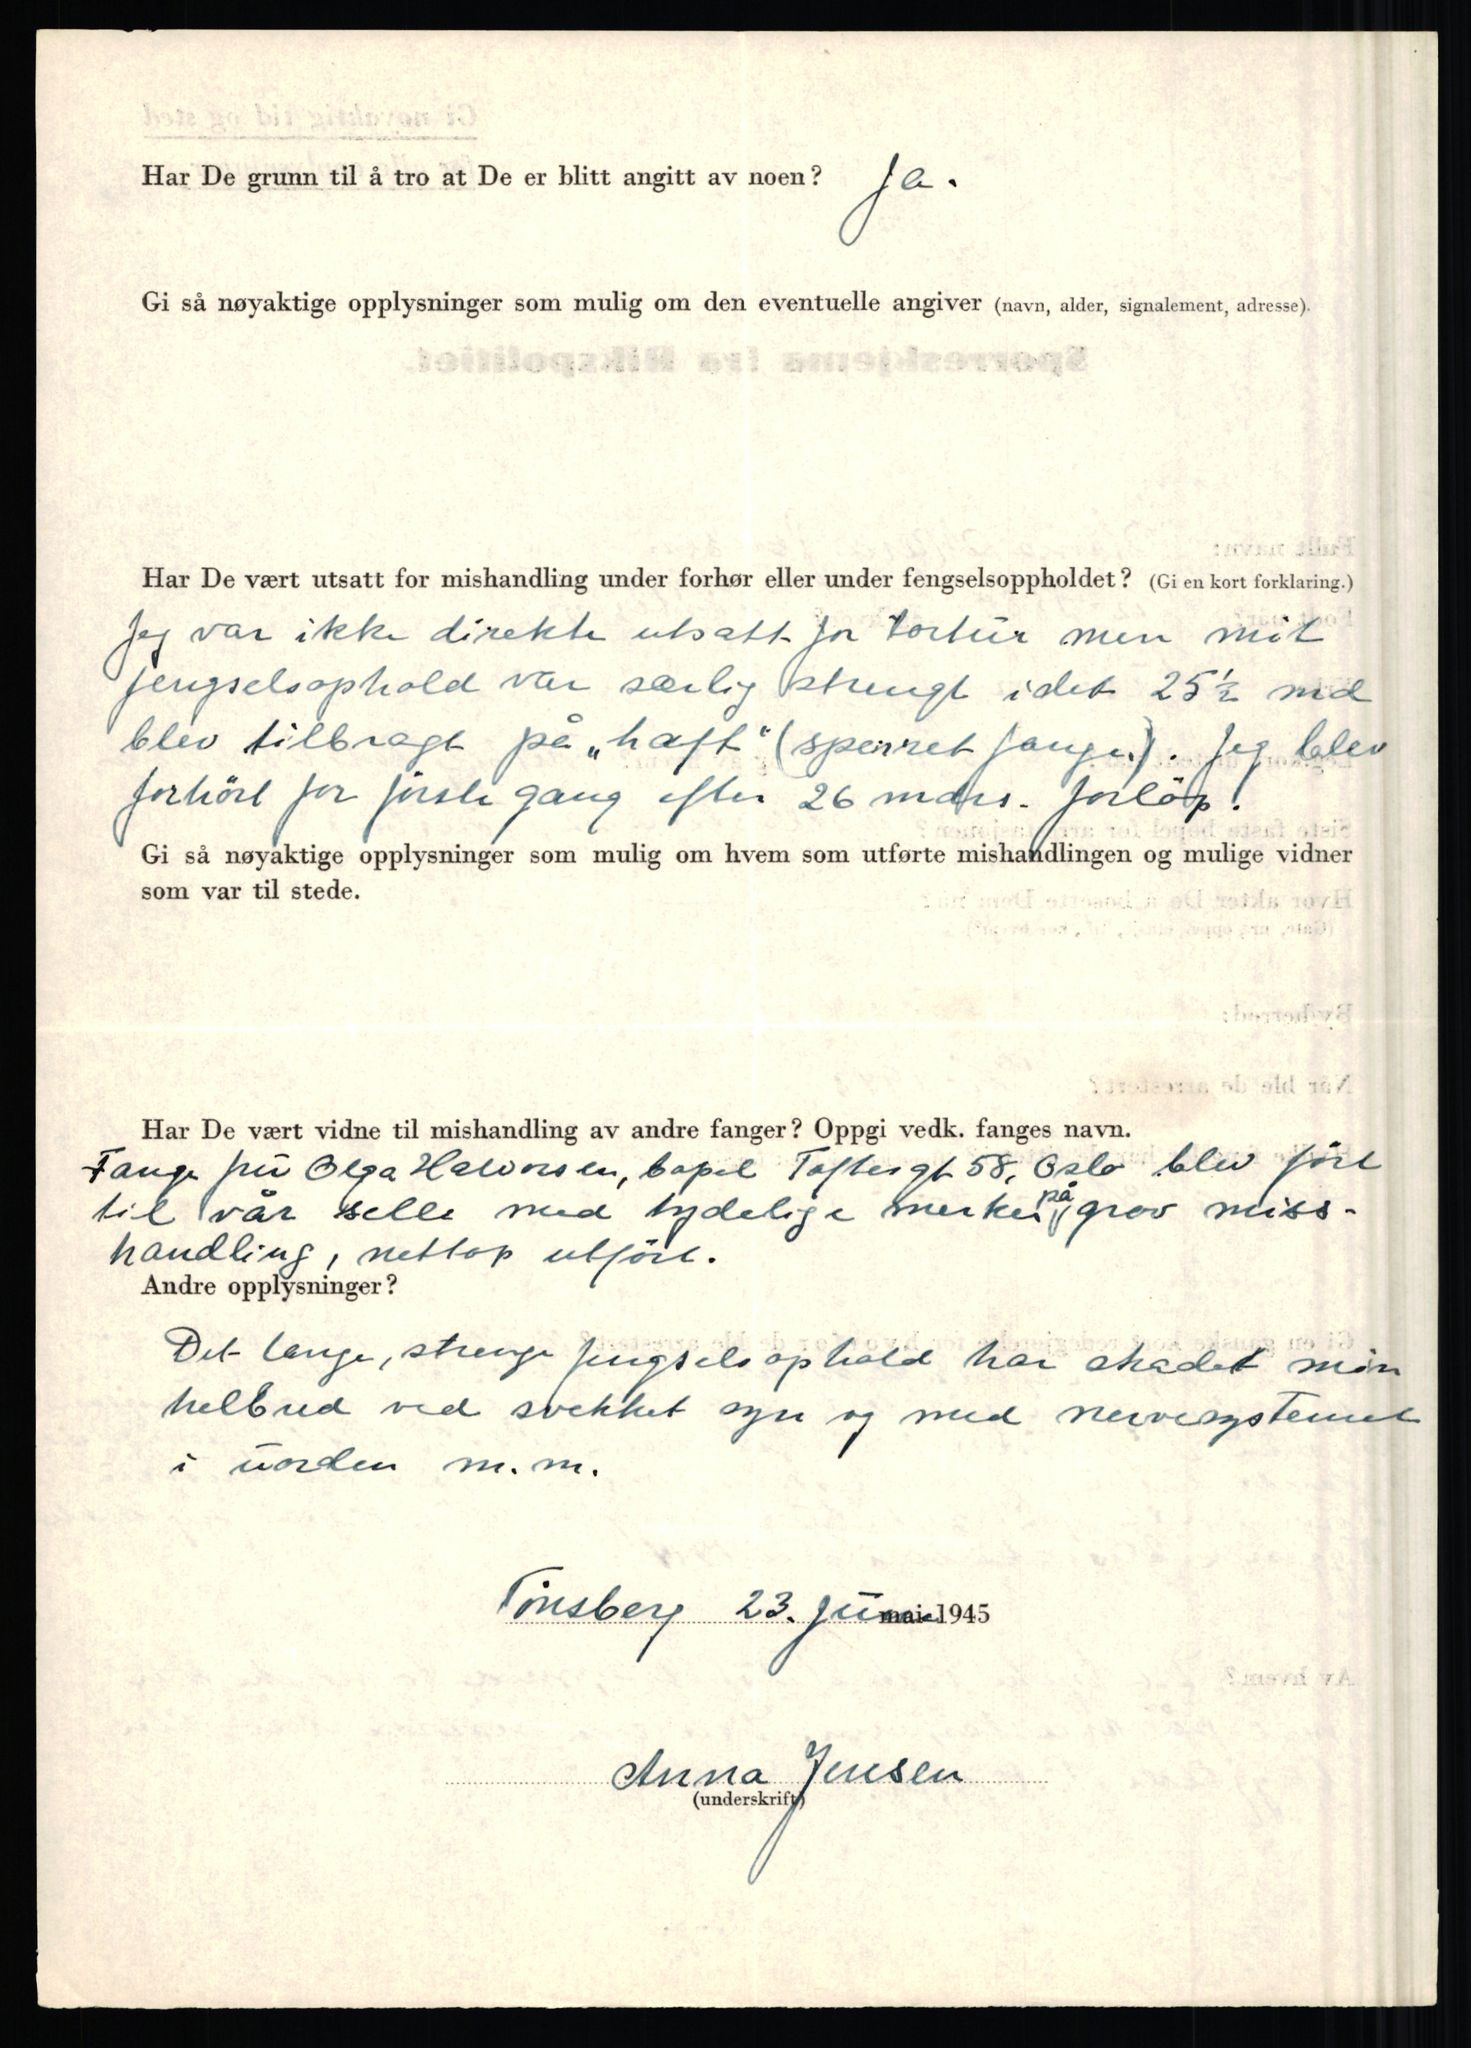 Har De grunn til å tro at De er blitt angitt av noen? Ja.
Gi så nøyaktige opplysninger som mulig om den eventuelle angiver (navn, alder, signalement, adresse).
Har De vært utsatt for mishandling under forhør eller under fengselsoppholdet? (Gi en kort forklaring.)
Jeg var ikke direkte utsatt for tortur men mit
fengselsophold var særlig strengt idet 25½ md
blev tilbragt på „haft“ (sperret fange). Jeg blev
forhört for förste gang efter 26 mdrs. forlöp.
Gi så nøyaktige opplysninger som mulig om hvem som utførte mishandlingen og mulige vidner
som var til stede.
Har De vært vidne til mishandling av andre fanger? Oppgi vedk. fanges navn.
Fange fru Olga Halvorsen, bopel Toftesgt 58, Oslo blev fört
til vår selle med tydelige merker på grov miss-
handling, nettop utfört.
Andre opplysninger?
Det lange, strenge fengselsophold har skadet min
helbred ved svekket syn og med nervesystemet
i uorden m.m.
Tönsberg 23. Juni mai 1945
Anna Jensen
(underskrift)